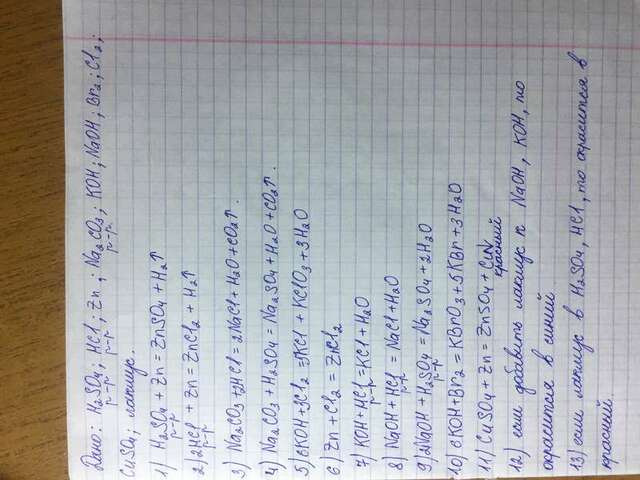 Дано: H2SO4; HCl; Zn; Na2CO3; KOH; NaOH; Br2; Cl2;
р-р р-р р-р
CuSO4; лакмус.
1) H2SO4 + Zn = ZnSO4 + H2↑
р-р
2) 2HCl + Zn = ZnCl2 + H2↑
р-р
3) Na2CO3 + 2HCl = 2NaCl + H2O + CO2↑.
4) Na2CO3 + H2SO4 = Na2SO4 + H2O + CO2↑.
5) 6KOH + 3Cl2 = 5KCl + KClO3 + 3H2O
6) Zn + Cl2 = ZnCl2
7) KOH + HCl = KCl + H2O
р-р
8) NaOH + HCl = NaCl + H2O
р-р
9) 2NaOH + H2SO4 = Na2SO4 + 2H2O
р-р
10) 6KOH + Br2 = KBrO3 + 5KBr + 3H2O
11) CuSO4 + Zn = ZnSO4 + Cu↓
красный
12) если добавить лакмус к NaOH, KOH, то
окрасится в синий.
13) если лакмус в H2SO4, HCl, то окрасится в
красный.